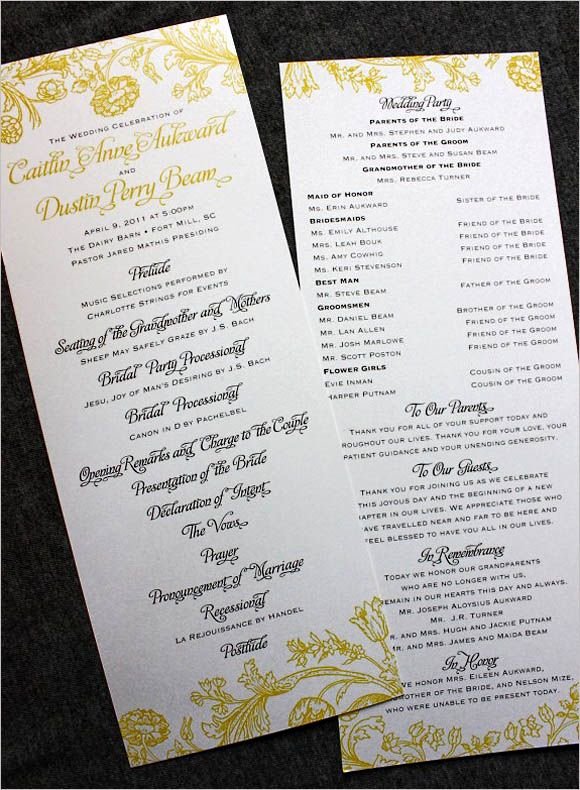 The Wedding Celebration of
Caitlin Anne Aukward
and
Dustin Perry Beam
April 9, 2011 at 5:00pm
The Dairy Barn • Fort Mill, SC
Pastor Jared Mathis Presiding
Prelude
Music Selections performed by
Charlotte Strings for Events
Seating of the Grandmother and Mothers
Sheep May Safely Graze by J.S. Bach
Bridal Party Processional
Jesu, Joy of Man's Desiring by J.S. Bach
Bridal Processional
Canon in D by Pachelbel
Opening Remarks and Charge to the Couple
Presentation of the Bride
Declaration of Intent
The Vows
Prayer
Pronouncement of Marriage
Recessional
La Rejouissance by Handel
Postlude
Wedding Party
Parents of the Bride
Mr. and Mrs. Stephen and Judy Aukward
Parents of the Groom
Mr. and Mrs. Steve and Susan Beam
Grandmother of the Bride
Mrs. Rebecca Turner
Maid of Honor
Ms. Erin Aukward Sister of the Bride
Bridesmaids
Ms. Emily Althouse Friend of the Bride
Mrs. Leah Bouk Friend of the Bride
Ms. Amy Cowhig Friend of the Bride
Ms. Keri Stevenson Friend of the Bride
Best Man
Mr. Steve Beam Father of the Groom
Groomsmen
Mr. Daniel Beam Brother of the Groom
Mr. Lan Allen Friend of the Groom
Mr. Josh Marlowe Friend of the Groom
Mr. Scott Poston Friend of the Groom
Flower Girls
Evie Inman Cousin of the Groom
Harper Putnam Cousin of the Groom
To Our Parents
Thank you for all of your support today and
roughout our lives. Thank you for your love, your
patient guidance and your unending generosity.
To Our Guests
Thank you for joining us as we celebrate
this joyous day and the beginning of a new
hapter in our lives. We appreciate those who
ave travelled near and far to be here and
feel blessed to have you all in our lives.
In Remembrance
Today we honor our grandparents
who are no longer with us,
remain in our hearts this day and always.
Mr. Joseph Aloysius Aukward
Mr. J.R. Turner
Mr. and Mrs. Hugh and Jackie Putnam
Mr. and Mrs. James and Maida Beam
In Honor
we honor Mrs. Eileen Aukward,
other of the Bride, and Nelson Mize,
who were unable to be present today.